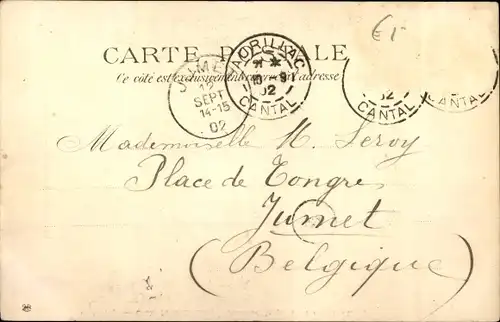 E1
CARTE POSTALE
Ce côté est exclusivement réservé à l'adresse
JUMET
12
SEPT
14-15
02
AURILLAC
9
02
CANTAL
02
CANTAL
CANTAL
Mademoiselle M. Leroy
Place de Tongres
Jumet
(Belgique)